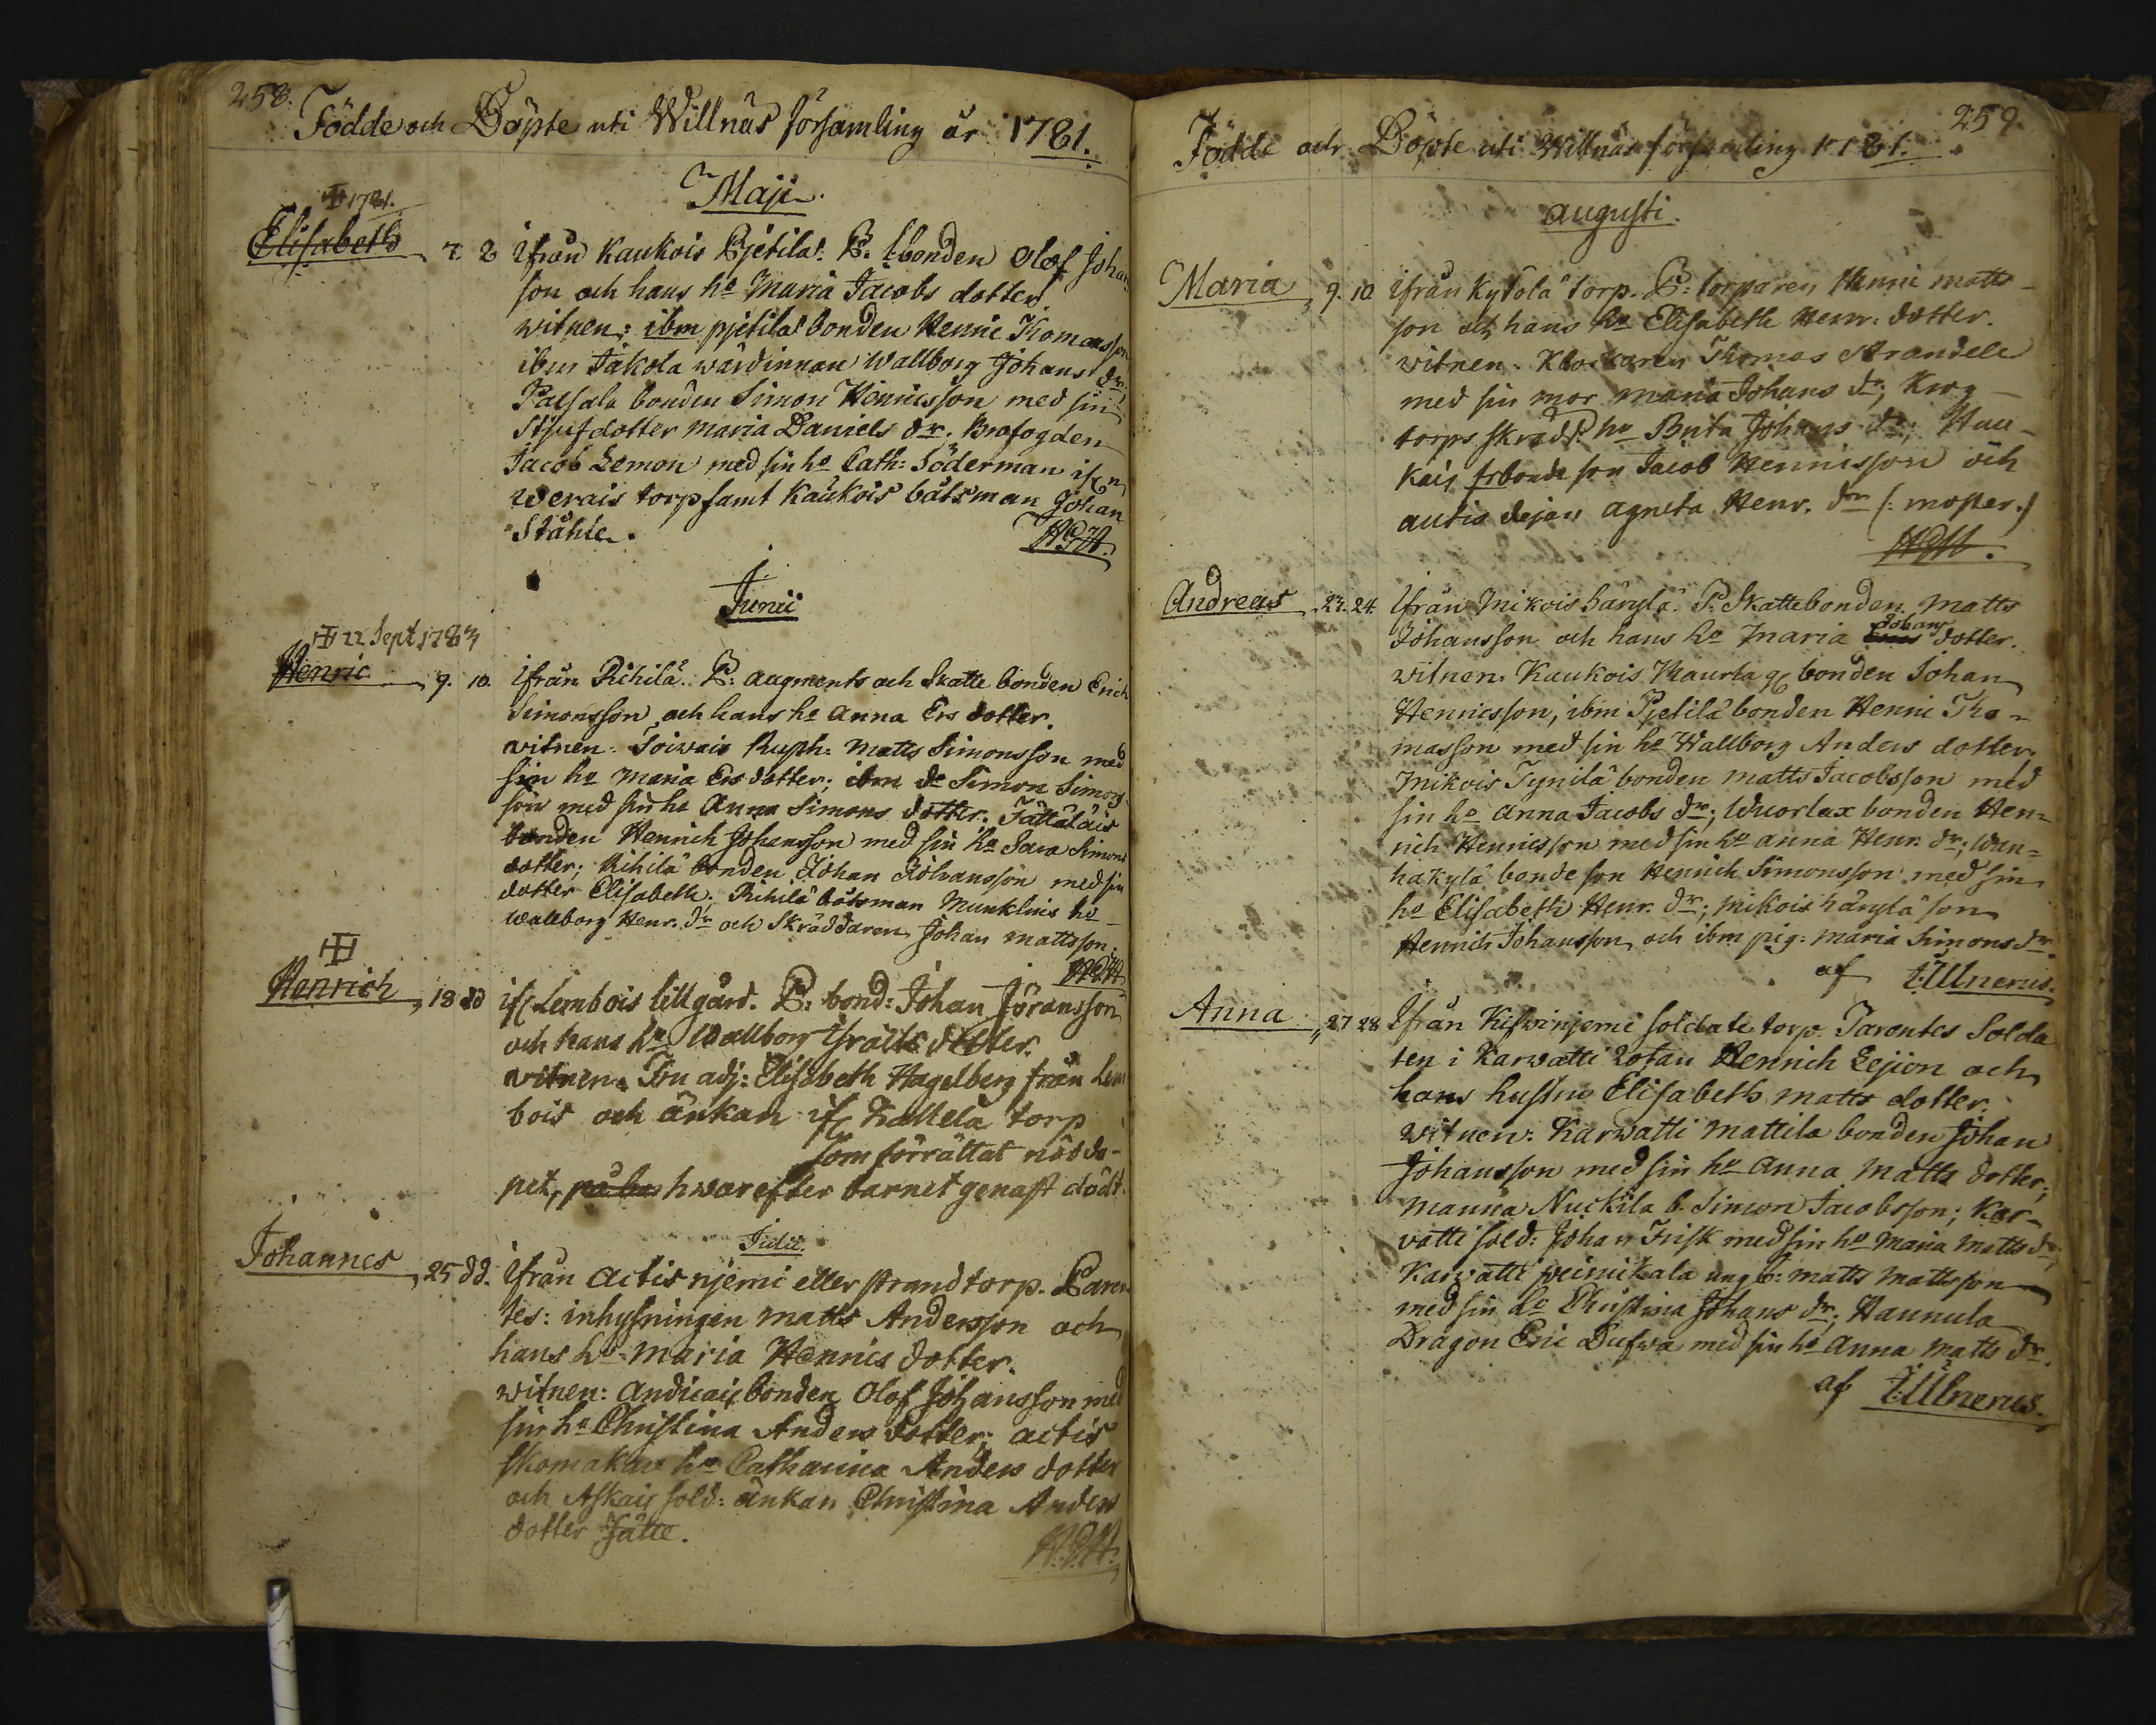 258.
Födde och Döpte uti Willnäs församling år 1781.
Maji.
1781.
Elisabeth 7. 8 ifrån Kaukois Pjetila. P. bonden Olof Johan
son och hans ho Maria Jacobs dotter.
witnen: ibm pjetilä bonden Henric Thomasson
ibm Jakola wärdinnan Wallborg Johans dr.
Paesala bonden Simon Henricsson med sin
Stjufdotter Maria Daniels dr. Brofogden
Jacob Lemon med sin ho Cath: Söderman
werais torp samt Kaukois båtsman Johan
Ståhle.
Junii
22 Sept 1783
Henric 9. 10. ifrån Rihilä. P: augments och Skatte bonden Erich
Simonsson och hans ho Anna Ers dotter.
witnen: Toiwais Rusth: Matts Simonsson med
sin ho Maria Ers dotter; ibm de Simon Simons
son med sin ho Anna Simons dotter. Tättäläis
bonden Henrich Johansson med sin ho Sara Simons
dotter; Rihilä bonden Johan Johansson med sin
dotter Elisabeth; Rihilä båtsman Munklins ho
Wallborg Henr. dr och Skräddaren Johan Mattsson.
Henrich 18 dd if Lembois lillgård. P. bond: Johan Jöransson
och hans ho Wallborg Israels dotter.
witnen. Fru adj: Elisabeth Hagelberg från Lem
bois och änkan if Kallela torp
som förrättat nöddo-
pet, hwarefter barnet genast dödt.
Julii.
Johannes 25 dd. ifrån Actis njemi eller strandtorp. Paren
tes: inhysningen Matts Andersson och
hans ho Maria Henrics dotter.
witnen: Andicais bonden Olof Johansson med
sin ho Christina Anders dotter; actis
skomakar ho Catharina Anders dotter
och Askais sold: änkan Christina Anders
dotter Fälle.
259.
Födde och Döpte uti Willnäs församling 1781.
Augusti.
Maria 9. 10 ifrån Kytölä torp. P: torparen Henric Matts-
son och hans ho Elisabeth Henr: dotter.
witnen. Klockaren Thomas Strandell
med sin mor Maria Johans dr, Krog-
torps skradd. ho Brita Johans dr; Hau-
kais bonde son Jacob Henricsson och
autis dejan Agneta Henr. dr (: moster.)
Andreas 23. 24. ifrån Mikois härylä. P. Skattebonden Matts
Johansson och hans ho Maria Johans dotter.
witnen. Kaukois Maurla bonden Johan
Henricsson, ibm Pjetilä bonden Henric Tho-
masson med sin ho Wallborg Anders dotter.
Mikois Tynilä bonden Matts Jacobsson med
sin ho Anna Jacobs dr; Wuorlax bonden Hen=
rich Henricsson med sin ho Anna Henr. dr; Wan=
hakylä bonde son Henrich Simonsson med sin
ho Elisabeth Henr. dr; Mikois härylä son
Henrich Johansson och ibm pig: Maria Simons dr.
af Ullnerus.
Anna 27 28 ifrån Kiswinjemi soldate torp. Parentes Solda
ten i Karwatti Rotan Henrich Lejion och
hans hustru Elisabeth Matts dotter.
witnen: Karwatti Mattila bonden Johan
Johansson med sin ho Anna Matts dotter;
Manna Nuckila b. Simon Jacobsson; Kar-
vatti sold: Johan Frisk med sin ho Maria Matts dr;
Karvatti ung b: Matts Mattsson
med sin ho Christina Johans dr, Haunula
Dragon Eric Dufwa med sin ho Anna Matts dr.
af Ullnerus.